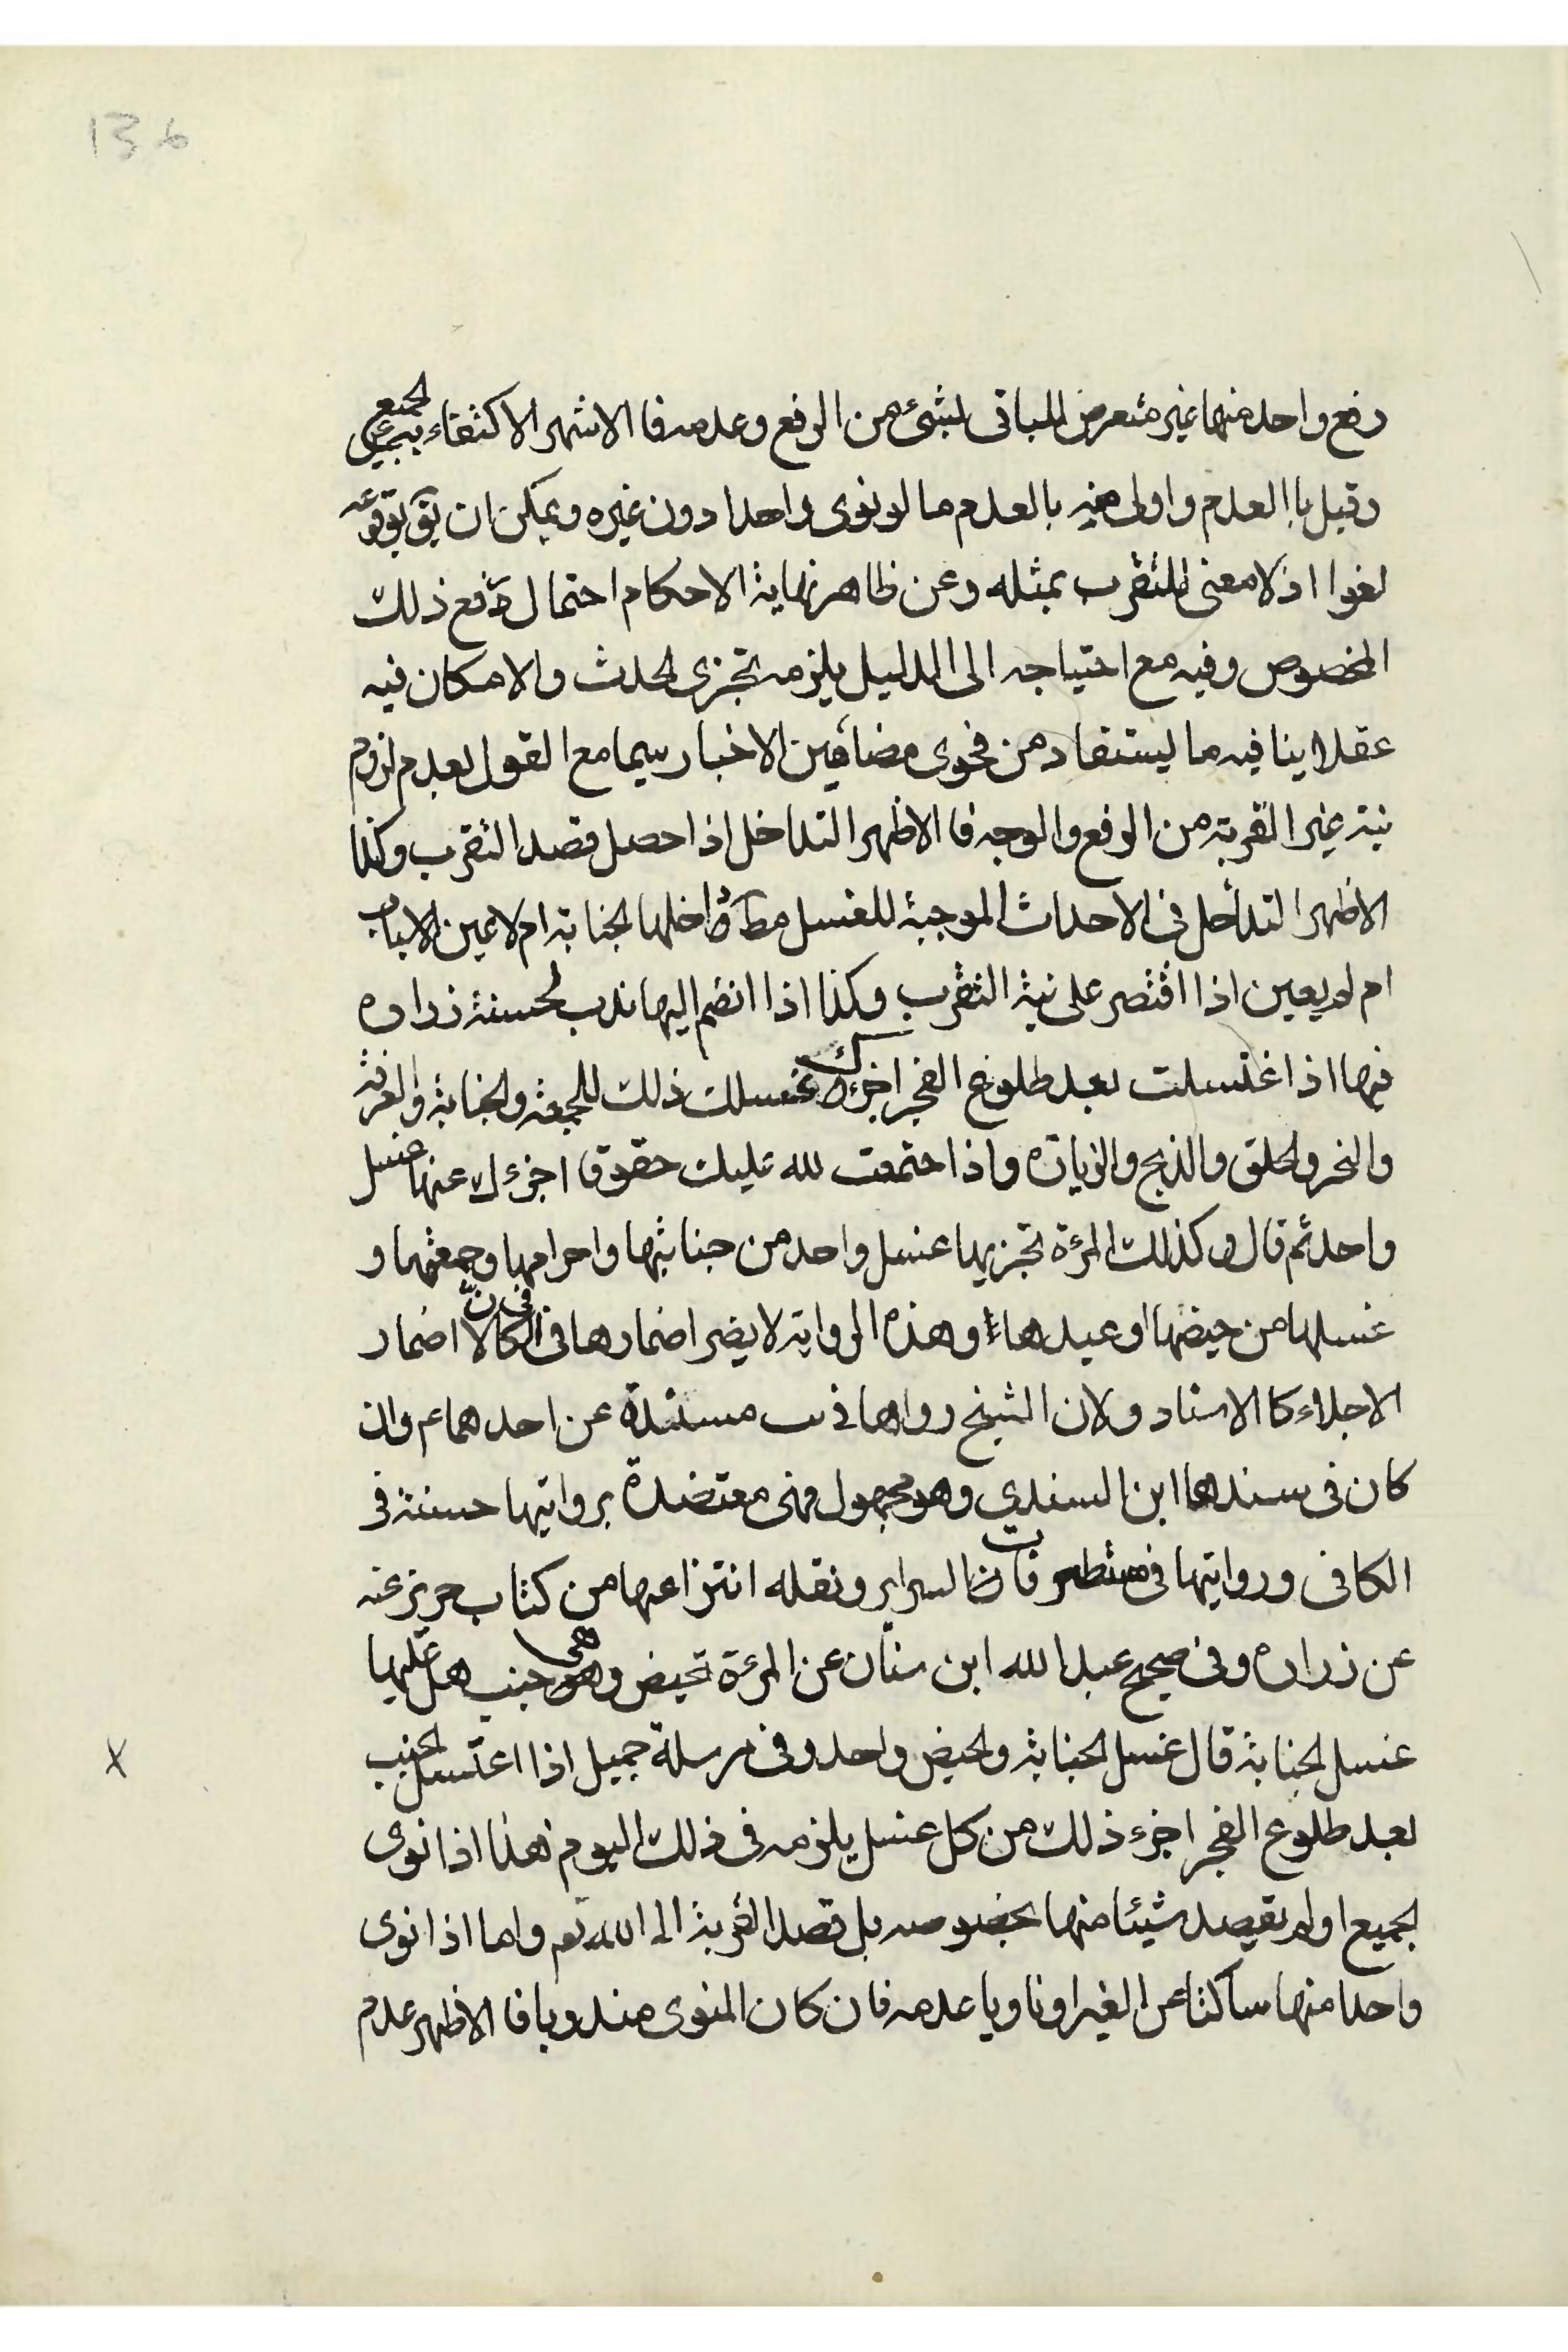 136
رفع واحد منها غير متعرض للباقي لشيء من الرفع وعدمه فا الاشهر الاكتفاء به عن الجميع
وقيل باالعدم واولى منه بالعدم ما لو نوى واحدا دون غيره ويمكن ان يق بوقوعه
لغوا اذ لا معنى للتقرب بمثله وعن ظاهر نهاية الاحكام احتمال رفع ذلك
المخصوص وفيه مع احتياجه الى الدليل يلزمه تجزى الحدث والامكان فيه
عقلا ينافيه ما يستفاد من فحوى مضامين الاخبار سيما مع القول بعدم لزوم
نية غير القربة من الرفع والوجه فا الاظهر التداخل اذا حصل قصد التقرب وكذا
الاظهر التداخل في الاحداث الموجبة للغسل مط داخلها الجنابة ام لا عين الاسباب
ام لم يعين اذا اقتصر على نية التقرب وكذا اذا انضم اليها ندب لحسنة زراره
فيها اذا اغتسلت بعد طلوع الفجر اجزءك غسلك ذلك للجمعة والجنابة والعرفة
والنحر والحلق والذبح والزيارة واذا اجتمعت لله عليك حقوق اجزءك عنها غسل
واحد ثم قال وكذلك المرءة تجزيها غسل واحد من جنابتها واحرامها وجمعتها و
غسلها من حيضها او عيدها وهذه الرواية لا يضر اضمارها في الكافي لان اضمار
الاجلاء كا الاسناد ولان الشيخ رواها في يب مسندة عن احدهما عم وان
كان في سندها ابن السندي وهو مجهول فهى معتضدة بروايتها حسنة في
الكافي وروايتها في مستطرفات السراير ونقله انتزاعها من كتاب حريز عنه
عن زراره وفي صحيح عبد الله ابن سنان عن المرءة تحيض وهي جنب هل عليها
غسل الجنابة قال غسل الجنابة والحيض واحد وفي مرسلة جميل اذا اغتسل الجنب
بعد طلوع الفجر اجزء ذلك من كل غسل يلزمه في ذلك اليوم هذا اذا نوى
الجميع او لم يقصد شيئا منها بخصوصه بل قصد القربة الى الله تعم واما اذا نوى
واحدا منها ساكتا عن الغير او ناويا عدمه فان كان المنوى مندوبا فا الاظهر عدم